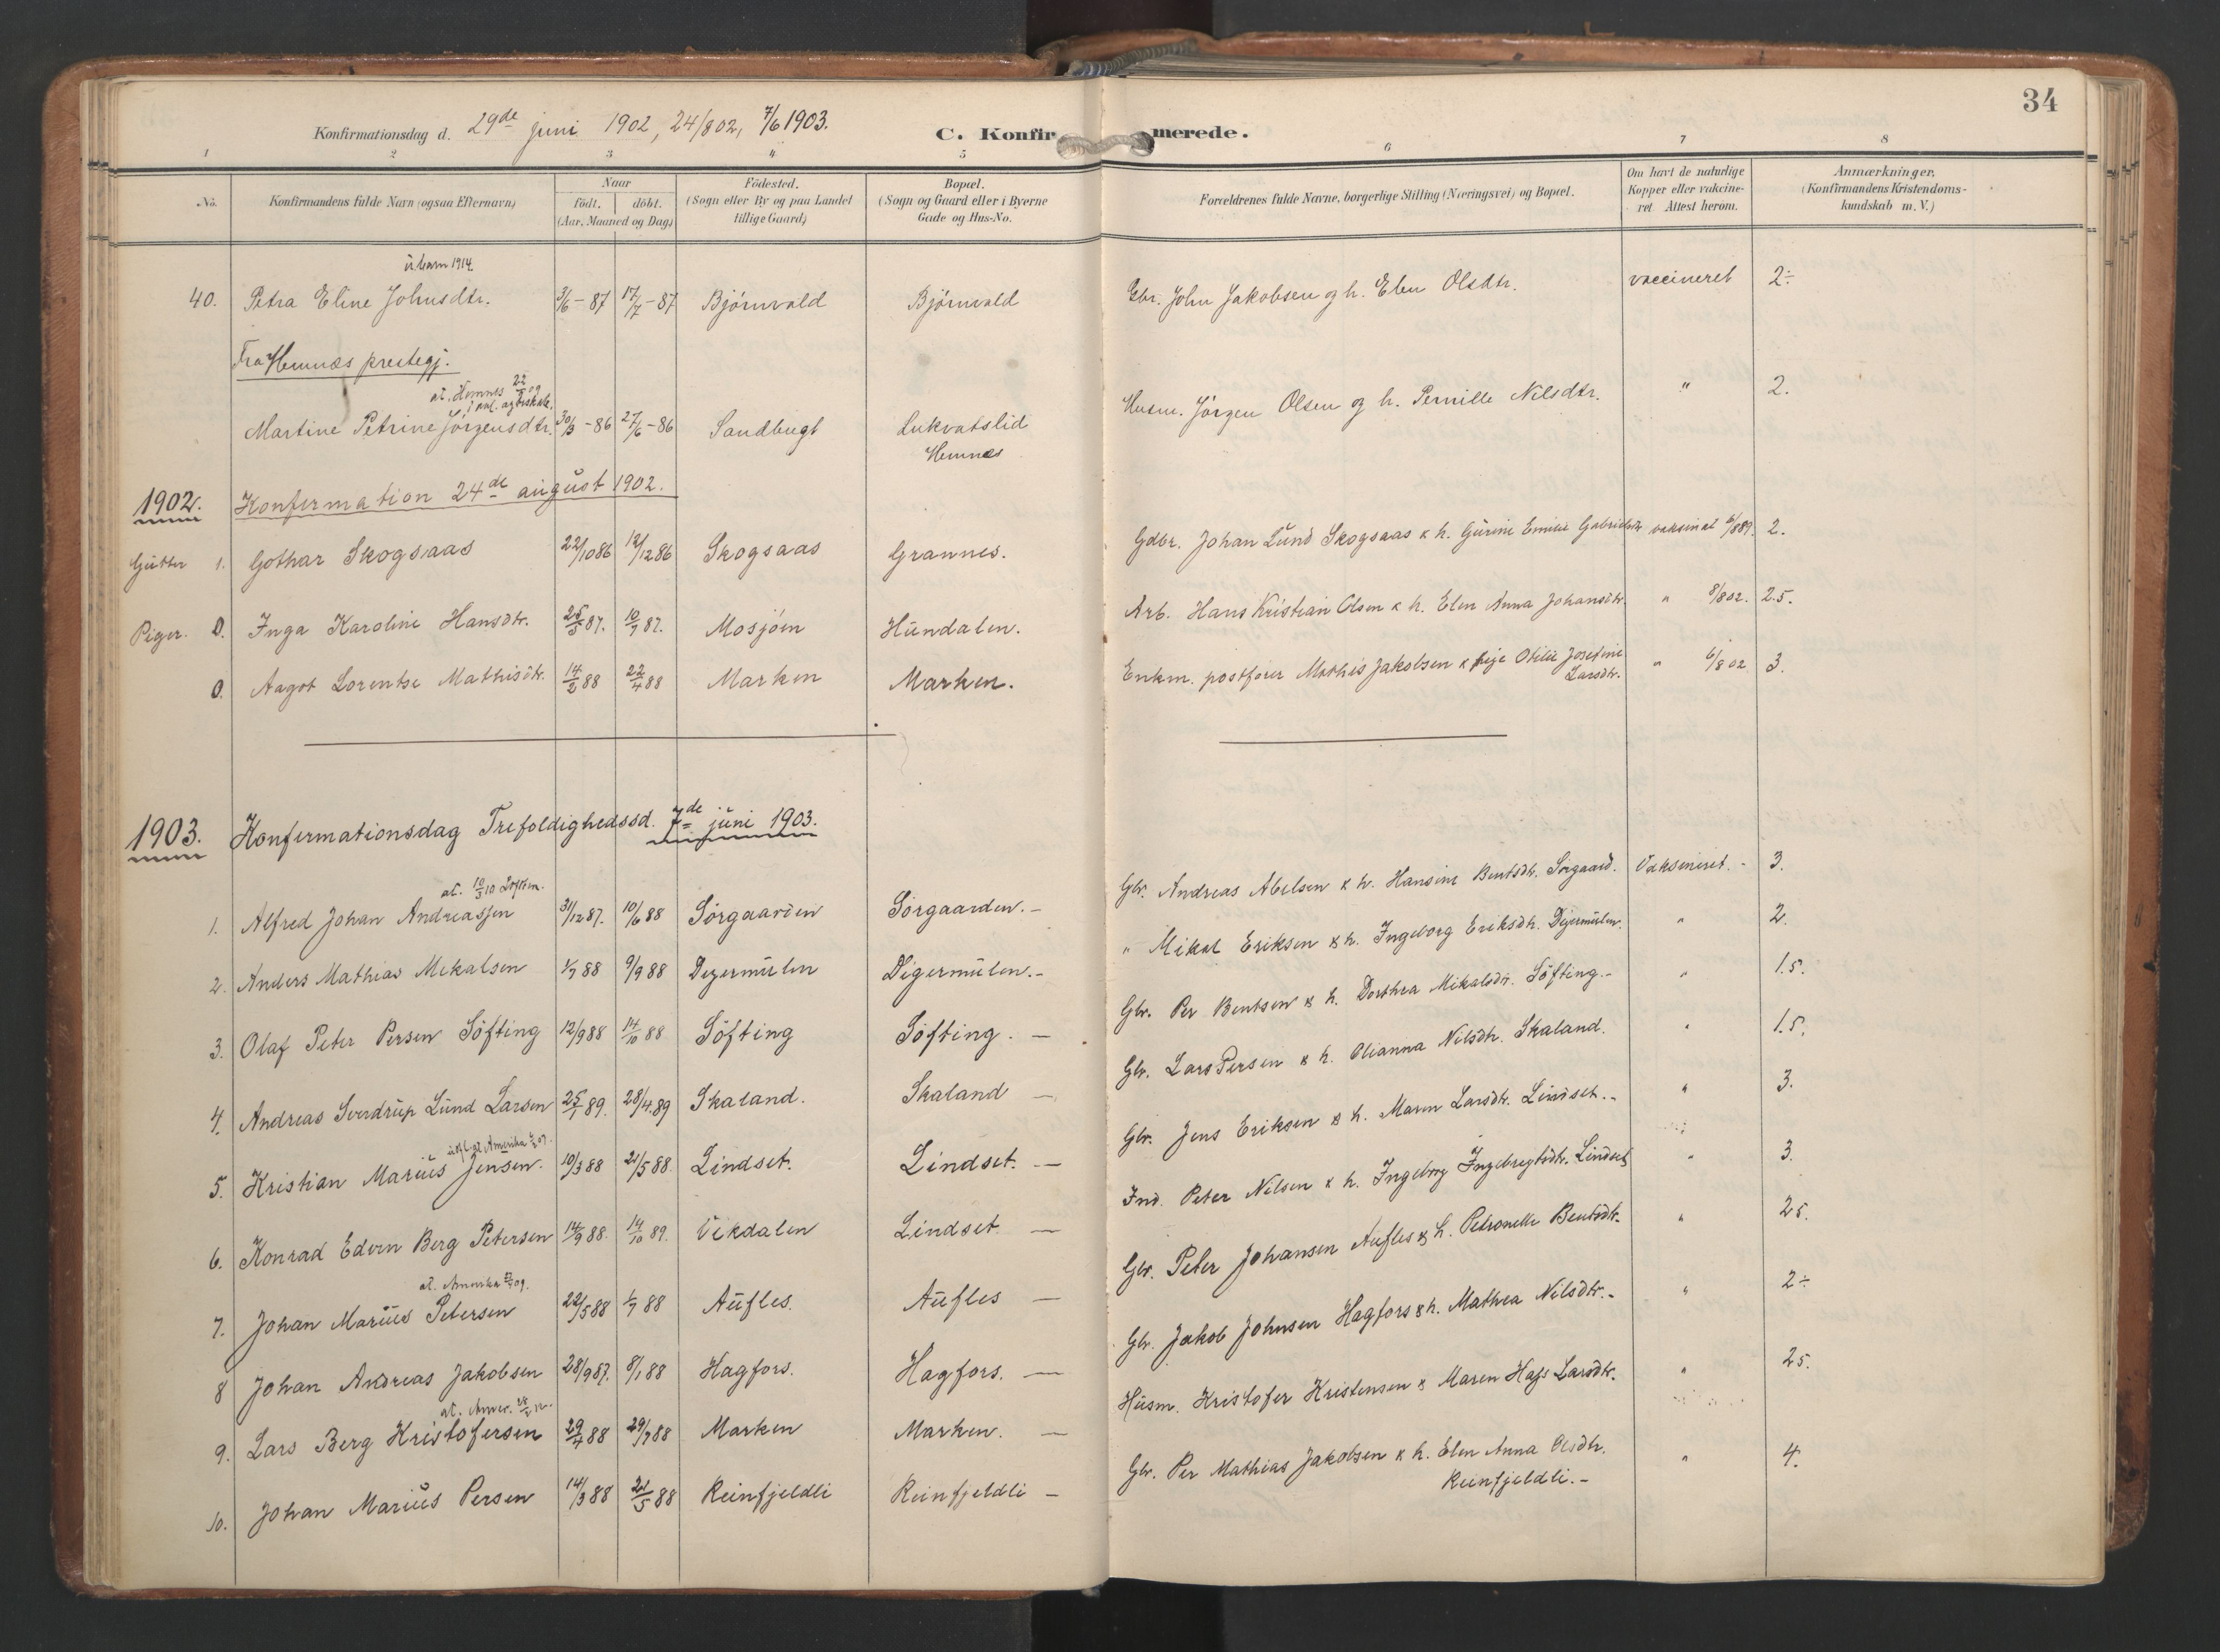 34
Konfirmationsdag d. 29de juni 1902, 24/8 02, 7/6 1903.
C. Konfirmerede.
1 2 3 4 5 6 7 8
No. Konfirmandens fulde Navn (ogsaa Efternavn) Naar födt. döbt. (Aar, Maaned og Dag) Födested. (Sogn eller By og paa Landet tillige Gaard) Bopæl. (Sogn og Gaard eller i Byerne Gade og Hus-No. Forældrenes fulde Navne, borgerlige Stilling (Næringsvei) og Bopæl. Om havt de naturlige Kopper eller vakcineret Attest herom. Anmærkninger. (Konfirmandens Kristendomskundskab m. V.)
1914.
40. Petra Eline Johnsdtr. 3/6-87 17/7-87 Bjørnvald Bjørnvald Gbr. John Jakobsen og h. Elen Olsdtr. vaccineret 2÷
Fra Hemnæs prestegj.
at. Hemnes 22
Martine Petrine Jörgensdtr. 30/3-86 27/6-86 Sandbugt Lukvatslid Husm. Jörgen Olsen og h. Pernille Nilsdtr. " 2.
Hemnæs
1902. Konfirmation 24de august 1902.
Gutter 1. Gothar Skogsaas 22/10 86 12/12 86 Skogsaas Grannes. Gdbr. Johan Lund Skogsaas & h. Gurine Emilie Gabrielsdtr vaksinat 6/8 89. 2.
Piger. 0. Inga Karoline Hansdtr. 25/5 87. 10/7 87. Mosjöen Hundalen. Arb. Hans Kristian Olsen & h. Elen Anna Johansdtr. " 8/8 02. 2.5.
0. Aagot Lorentse Mathisdtr. 14/2 88 22/4 88 Marken Marken. Enkm. postförer Mathis Jakobsen & pige Otilie Josefine " 6/8 02 3.
Larsdtr.
1903. Konfirmationsdag Trefoldighedssd. 7de juni 1903.
at. 10/3 10
1. Alfred Johan Andreassen 31/12 87. 10/6 88 Sörgaarden Sörgaarden.- Gbr. Andreas Abelsen & h. Hansine Bentsdtr. Sörgaard. Vaksineret.- 3.
2. Anders Mathias Mikalsen 1/7 88 9/9 88 Digermulen Digermulen.- " Mikal Eriksen & h. Ingeborg Eriksdtr. Digermulen. " 2.
3. Olaf Peter Persen Söfting 12/9 88 14/10 88 Söfting Söfting. - Gbr. Per Bentsen & h. Dorthea Mikalsdtr. Söfting.- " 1.5.
4. Andreas Sverdrup Lund Larsen 25/1 89. 28/4 89 Skaland. Skaland - Gbr. Lars Persen & h. Olianna Nilsdtr. Skaland. " 1.5.
Amerika
5. Kristian Marius Jensen. 10/3 88 21/5 88. Lindset. Lindset. - Gbr. Jens Eriksen & h. Maren Larsdtr. Lindset.- " 3.
6. Konrad Edvin Berg Petersen 14/9 88. 14/10 89. Vikdalen Lindset - Ind. Peter Nilsen & h. Ingeborg Ingebregtsdtr. Lindset " 3.
at. Amerika
7. Johan Marius Petersen 22/5 88 1/7 88 Aufles. Aufles - Gbr. Peter Johansen Aufles & h. Petronelle Bentsdtr. " 2.5.
8 Johan Andreas Jakobsen 28/9 87. 8/1 88 Hagfors. Hagfors. - Gbr. Jakob Johnsen Hagfors & h. Mathea Nilsdtr.- " 2÷
at. Amer.
9. Lars Berg Kristofersen 29/4 88 29/7 88 Marken Marken. - Husm. Kristofer Kristensen & Maren Hass Larsdtr. " 2.5.
10. Johan Marius Persen 14/3 88 21/5 88 Reinfjeldli Reinfjeldli - Gbr. Per Mathias Jakobsen & h. Elen Anna Olsdtr. " 4.
Reinfjeldli.-